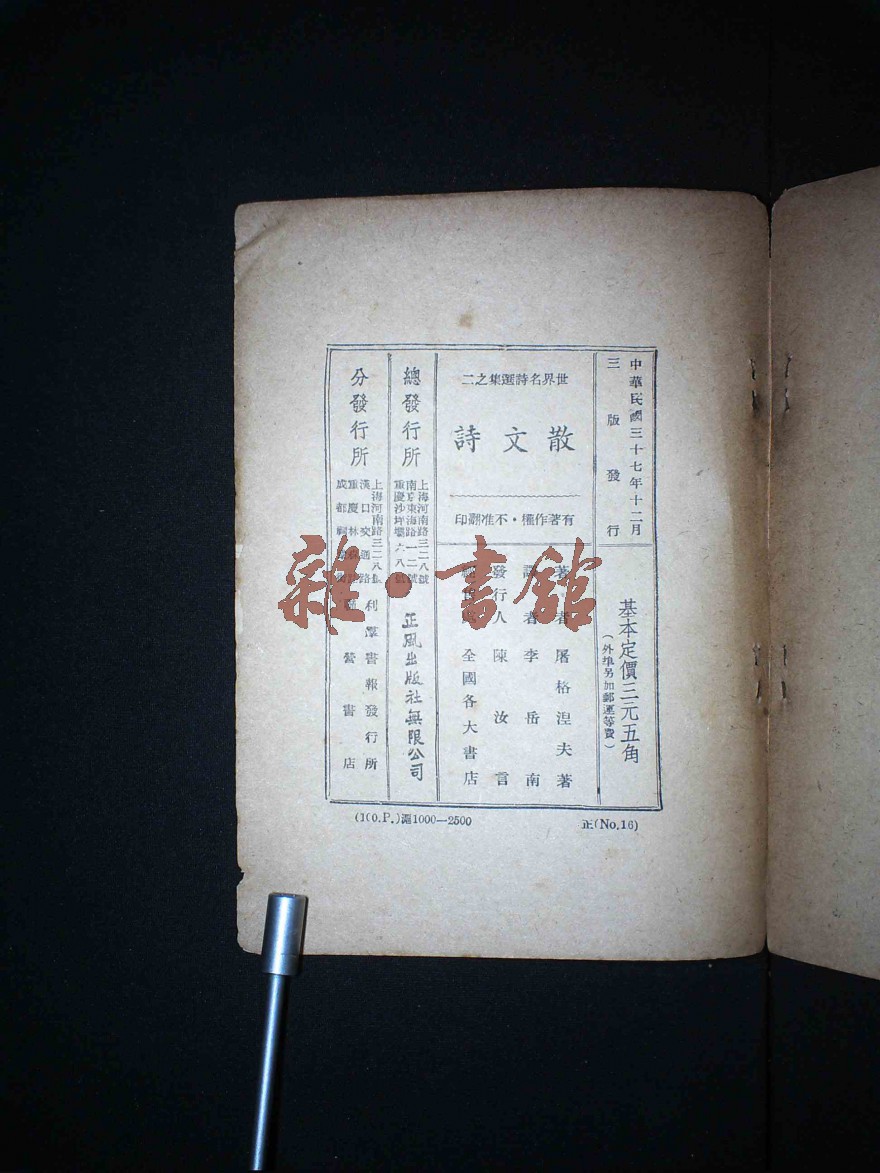 中華民國三十七年十二月
三版發行
基本定價三元五角
(外埠另加郵運等費)
世界名詩選集之二
散文詩
有著作權・不准翻印
著者 屠格涅夫著
譯者 李岳南
發行人 陳汝言
全國各大書店
總發行所
上海河南路三二八號
南京東海路一二號
重慶沙坪壩六八號
正風出版社無限公司
分發行所
上海河南路三二八號
漢口交通路
重慶林森路
成都祠堂街
利澤書報發行所
聯營書店
(1(0.P.)滬1000—2500
正(No.16)
雜・書館